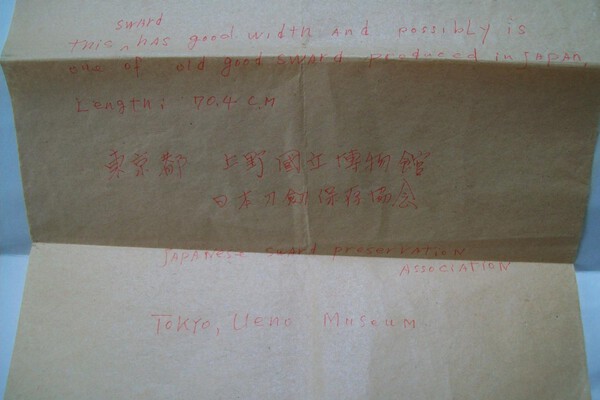 sward
this ‸ has good width and possibly is
one of old good sward produced in JAPAN
Length: 70.4 CM
東京都 上野國立博物館
日本刀劍保存協会
JAPAnese sward preservation
ASSOCIATION
TOKYO, Ueno Museum